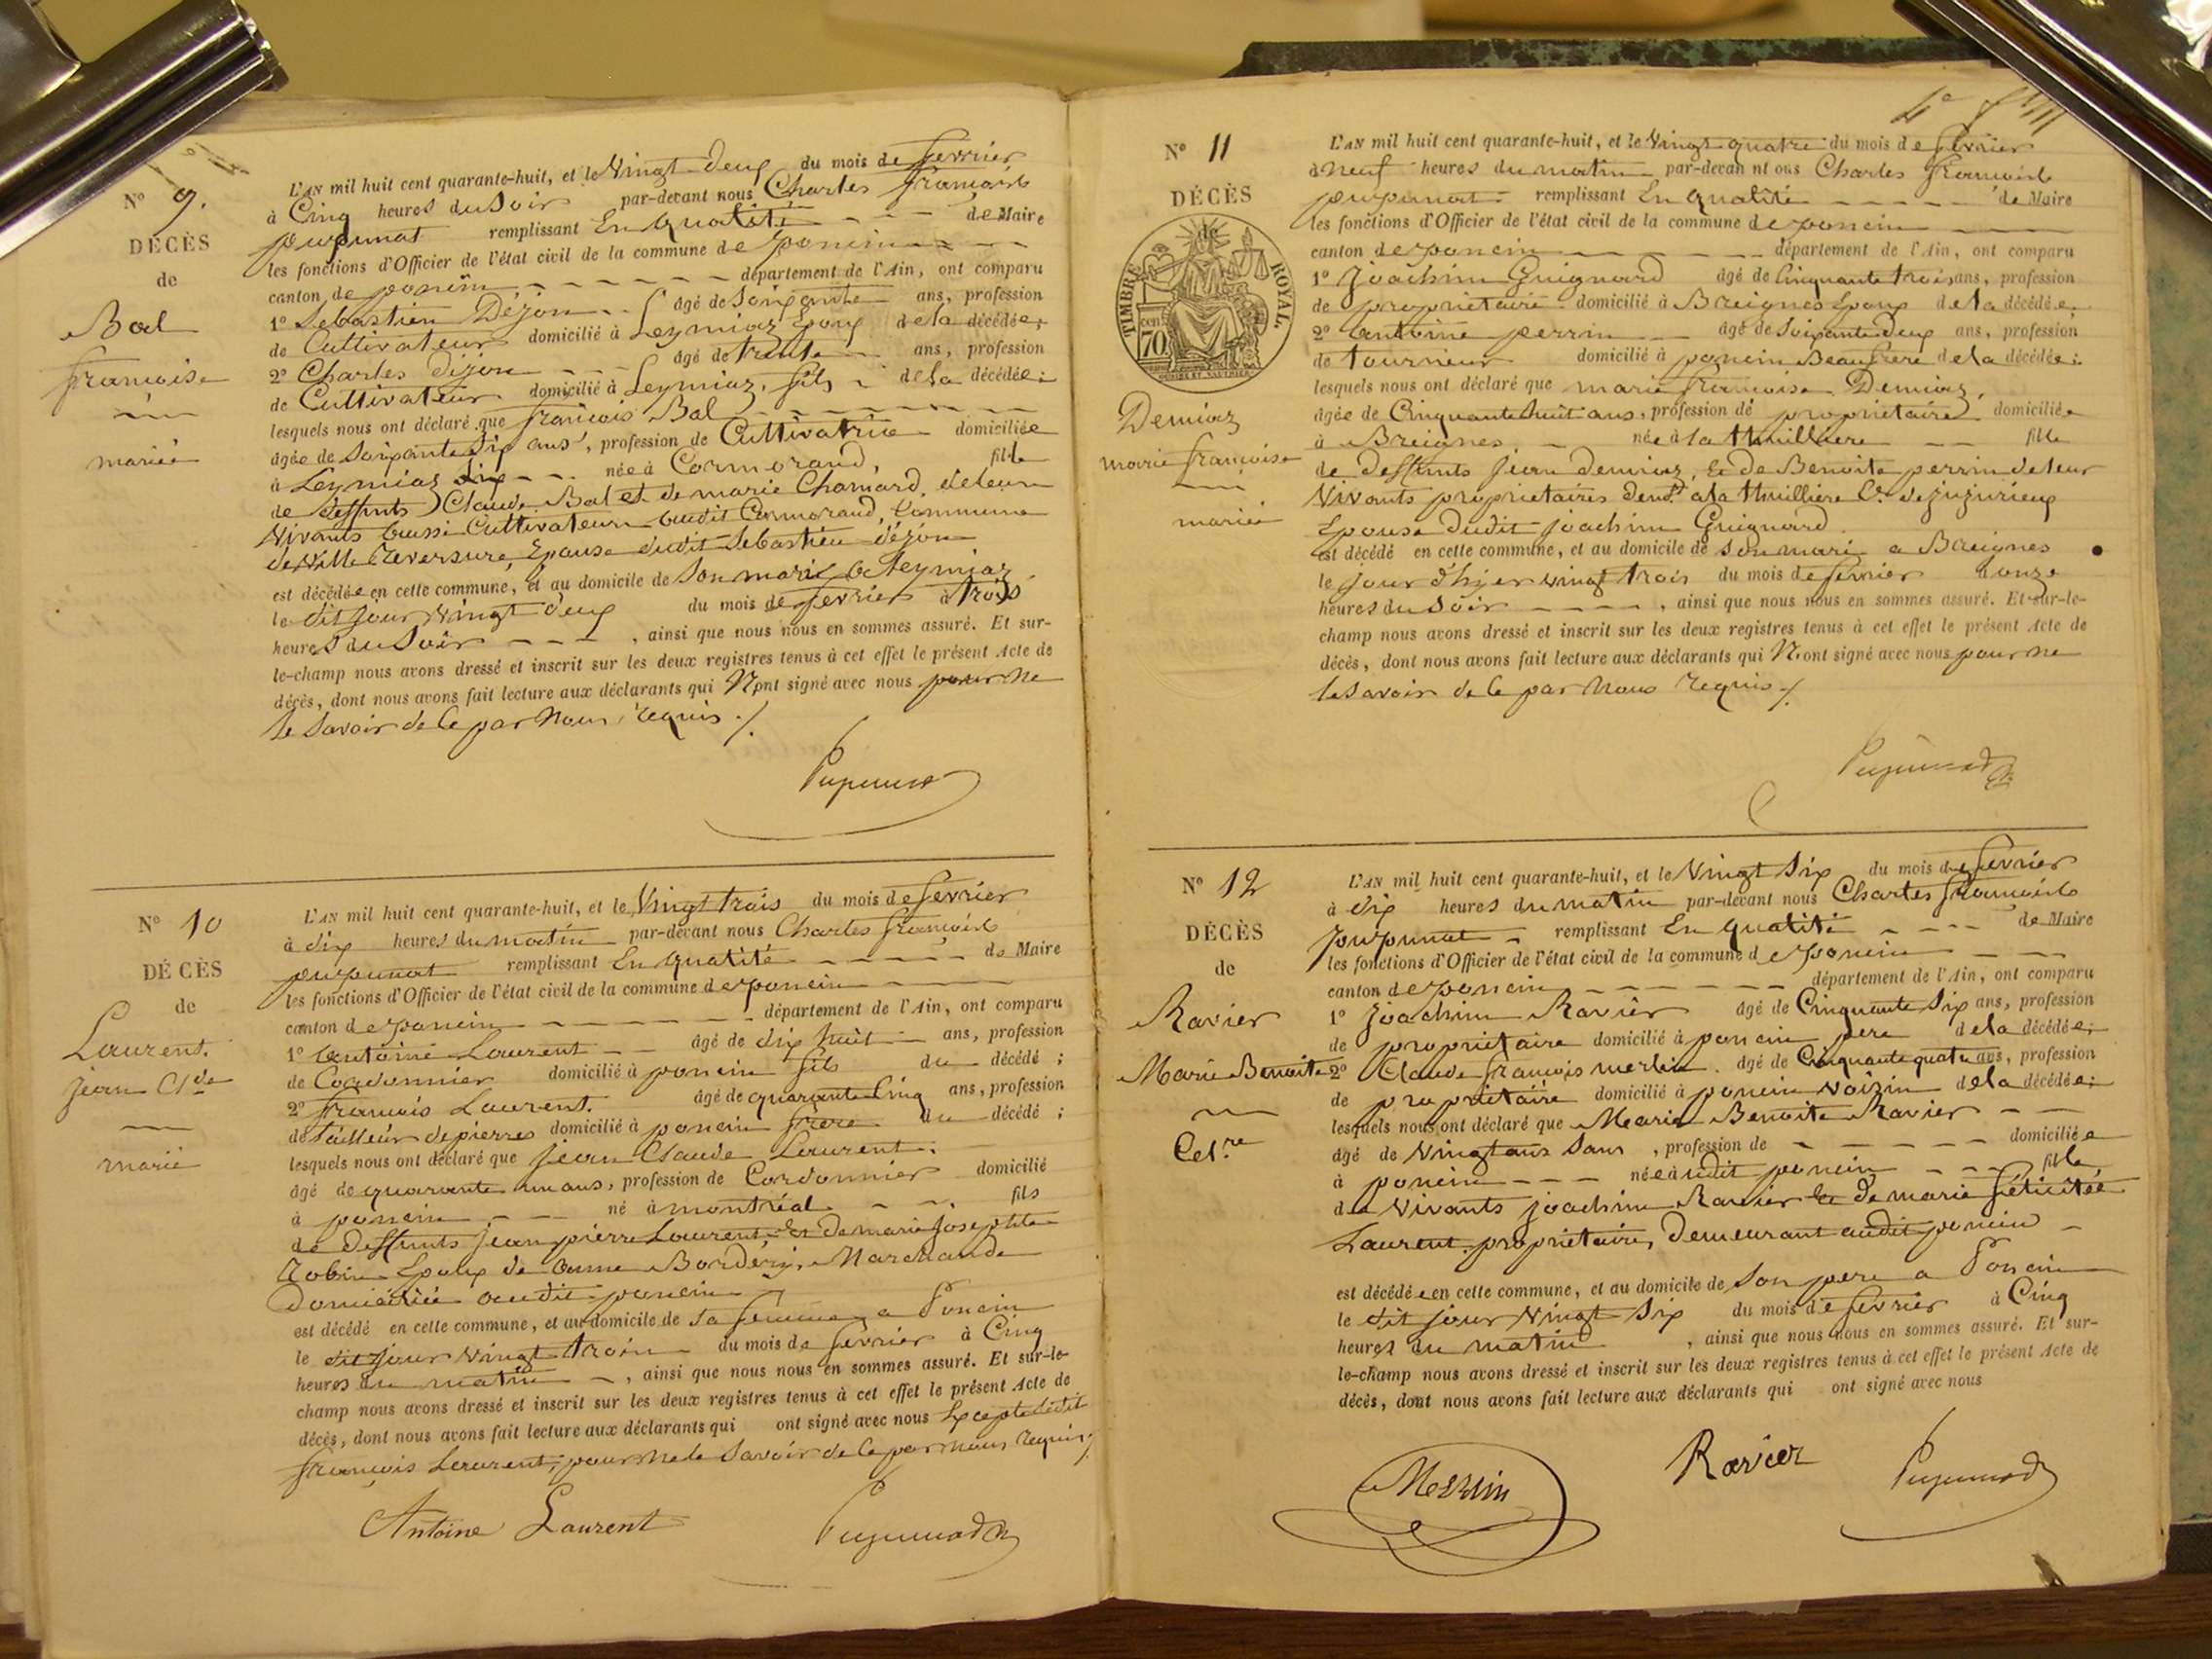 N° 9.
DÉCÈS
de
Bal
françoise
mariée
L'AN mil huit cent quarante-huit, et le Vingt deux du mois de fevrier
à Cinq heures du Soir par-devant nous Charles françois
pupunat remplissant En qualité de Maire
les fonctions d'Officier de l'état civil de la commune de poncin
canton de poncin département de l'Ain, ont comparu
1° Sebastien Déjon âgé de Soixante ans, profession
de Cultivateur domicilié à Leymiaz Epoux de la décédée;
2° Charles déjon âgé de trente ans, profession
de Cultivateur domicilié à Leymiaz, fils de la décédée;
lesquels nous ont déclaré que françoise Bal
âgée de Soixante Six ans, profession de Cultivatrice domiciliée
à Leymiaz née à Cormorand, fille
de deffunts Claude Bal et de marie Chamard, de leur
Vivants aussi Cultivateurs audit Cormorand, Commune
de Ville Reversure, Epouse dudit Sebastien déjon
est décédée en cette commune, et au domicile de Son mari a Leymiaz
le dit jour Vingt deux du mois de fevrier à trois
heures du Soir , ainsi que nous nous en sommes assuré. Et sur-
le-champ nous avons dressé et inscrit sur les deux registres tenus à cet effet le présent Acte de
décès, dont nous avons fait lecture aux déclarants qui N'ont signé avec nous pour ne
le Savoir de Ce par Nous requis ./.
Pupunat
N° 10
DÉCÈS
de
Laurent.
jean Cl.de
marié
L'AN mil huit cent quarante-huit, et le Vingt trois du mois de fevrier
à dix heures du matin par-devant nous Charles françois
pupunat remplissant En qualité de Maire
les fonctions d'Officier de l'état civil de la commune de poncin
canton de poncin département de l'Ain, ont comparu
1° antoine Laurent âgé de dix huit ans, profession
de Cordonnier domicilié à poncin fils du décédé;
2° françois Laurent. âgé de quarante Cinq ans, profession
de tailleur de pierres domicilié à poncin frere du décédé;
lesquels nous ont déclaré que jean Claude Laurent.
âgé de quarante un ans, profession de Cordonnier domicilié
à poncin né à montréal fils
de deffunts jean pierre Laurent, Et de marie josephte
Robin Epoux de anne Bordery, Marchande
Domiciliée audit poncin
est décédé en cette commune, et au domicile de sa femme a Poncin
le dit jour Vingt trois du mois de fevrier à Cinq
heures du matin , ainsi que nous nous en sommes assuré. Et sur-le-
champ nous avons dressé et inscrit sur les deux registres tenus à cet effet le présent Acte de
décès, dont nous avons fait lecture aux déclarants qui ont signé avec nous Excepté ledit
françois Laurent, pour ne le Savoir de Ce par nous requis ./.
Antoine Laurent Pupunat
N° 11
DÉCÈS
de
TIMBRE ROYAL.
70 cen
Demiaz
marie françoise
mariée
L'AN mil huit cent quarante-huit, et le Vingt quatre du mois de fevrier
à neuf heures du matin par-devan nt ous Charles françois
pupunat remplissant En qualité de Maire
les fonctions d'Officier de l'état civil de la commune de poncin
canton de poncin département de l'Ain, ont comparu
1° Joachim Guignard âgé de Cinquante trois ans, profession
de proprietaire domicilié à Breignes Epoux de la décédée;
2° antoine perrin âgé de Soixante deux ans, profession
de tourneur domicilié à poncin Beaufrere de la décédée;
lesquels nous ont déclaré que marie françoise Demiaz,
âgée de Cinquante huit ans, profession de proprietaire domiciliée
à Breignes née à la thuilliere fille
de deffunts jean demiaz, Et de Benoite perrin de leur
Vivants proprietaires demt. a la thuilliere Cne de jujurieux
Epouse dudit joachim Guignard
est décédé en cette commune, et au domicile de Son mari a Breignes
le jour d'hier vingt trois du mois de fevrier à onze
heures du Soir , ainsi que nous nous en sommes assuré. Et sur-le-
champ nous avons dressé et inscrit sur les deux registres tenus à cet effet le présent Acte de
décès, dont nous avons fait lecture aux déclarants qui N'ont signé avec nous pour ne
le savoir de Ce par Nous requis ./.
Pupunat
N° 12
DÉCÈS
de
Ravier
Marie Benoite
Cel.re
L'AN mil huit cent quarante-huit, et le Vingt Six du mois de fevrier
à dix heures du matin par-devant nous Charles françois
pupunat remplissant En qualité de Maire
les fonctions d'Officier de l'état civil de la commune de poncin
canton de poncin département de l'Ain, ont comparu
1° joachim Ravier âgé de Cinquante Six ans, profession
de proprietaire domicilié à poncin pere de la décédée;
2° Claude françois merlin. âgé de Cinquante quatre ans, profession
de proprietaire domicilié à poncin Voizin de la décédée;
lesquels nous ont déclaré que Marie Benoite Ravier
âgé de Vingt ans Sans , profession de domiciliée
à poncin née audit poncin fille
de Vivants joachim Ravier Et de marie félicitée
Laurent, proprietaires, Demeurant audit poncin
est décédée en cette commune, et au domicile de Son pere a Poncin
le dit jour Vingt Six du mois de fevrier à Cinq
heures du matin , ainsi que nous nous en sommes assuré. Et sur-
le-champ nous avons dressé et inscrit sur les deux registres tenus à cet effet le présent Acte de
décès, dont nous avons fait lecture aux déclarants qui ont signé avec nous
Merlin Ravier Pupunat